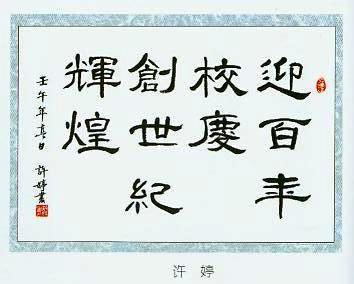 迎百年
校慶
創世紀
輝煌
壬午年春日 許婷書
许 婷